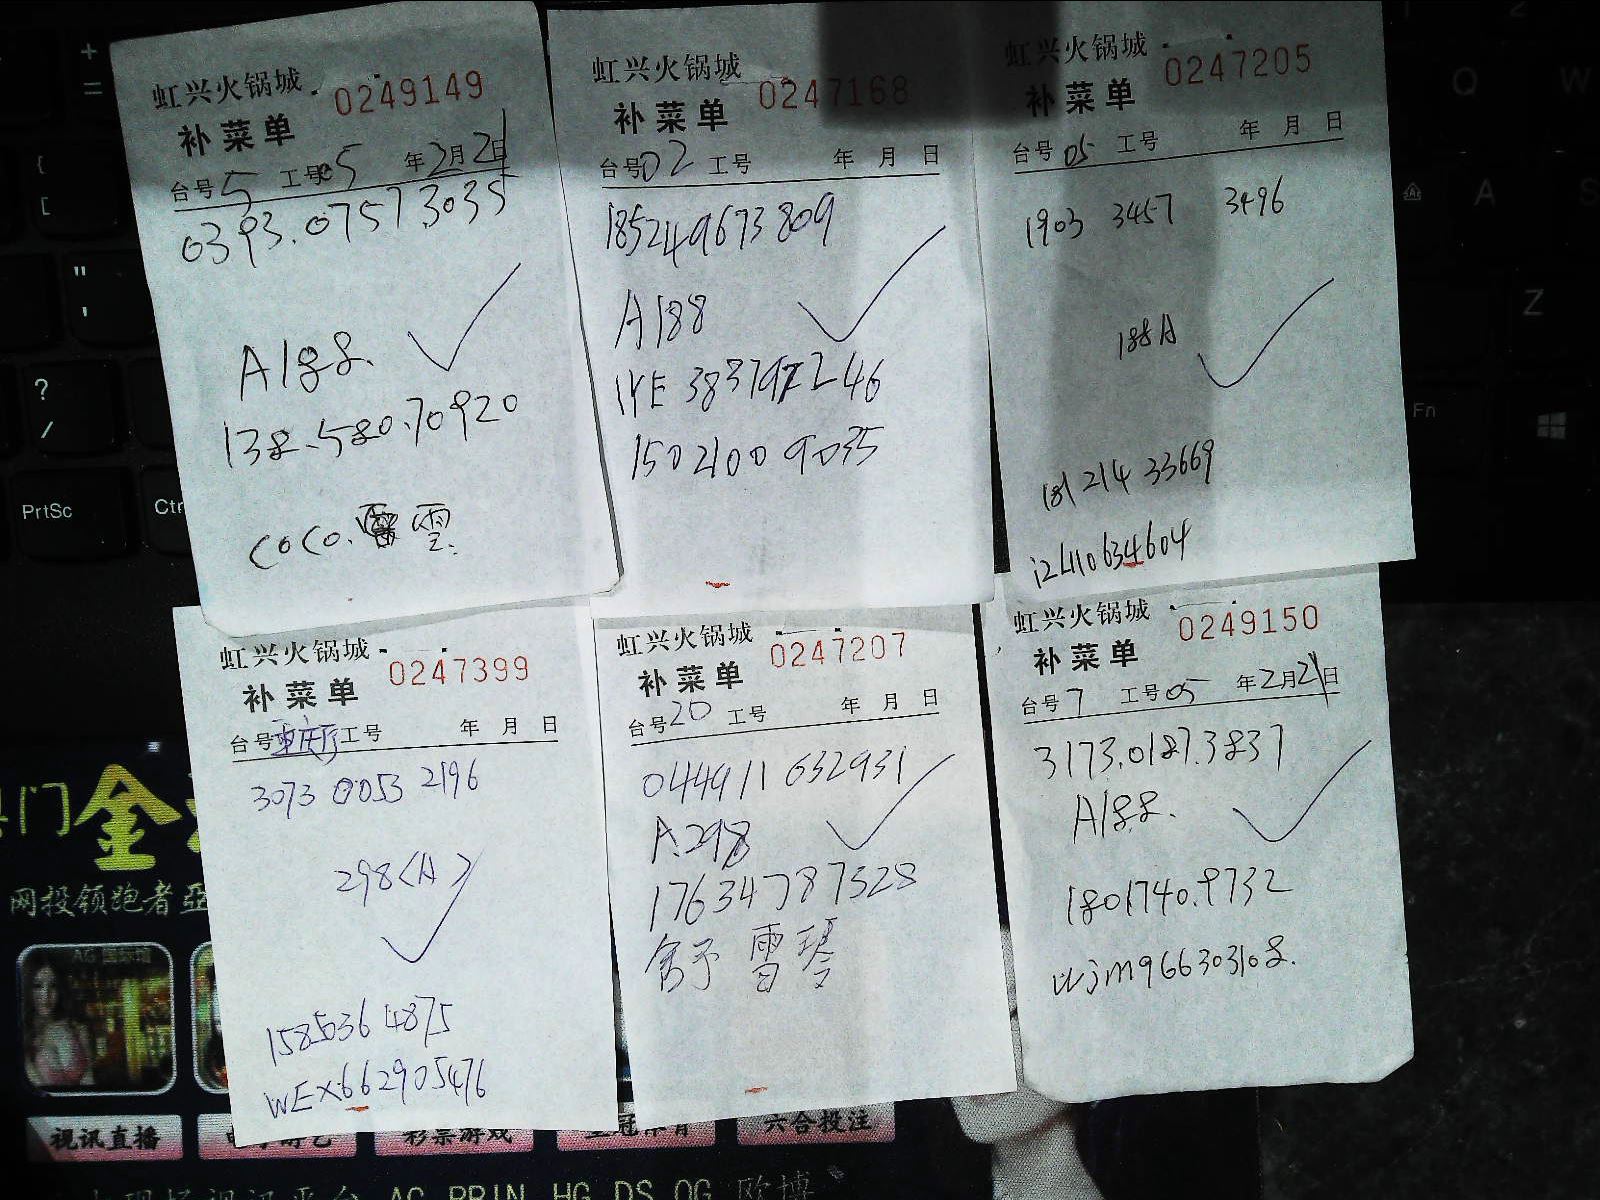 虹兴火锅城 0249149
补菜单
台号5 工号05 年2月21日
0393.0757.3035
A188.
138.580.70920
COCO.雪
虹兴火锅城 0247168
补菜单
台号02 工号 年 月 日
185249673809
A188
38379
15021009035
虹兴火锅城 0247205
补菜单
台号05 工号 年 月 日
1903 3457 3496
188A
181 214 33669
i2410634604
虹兴火锅城 0247399
补菜单
台号重庆厅工号 年 月 日
3073 0053 2196
298<A>
15850364875
WEX662905476
虹兴火锅城 0247207
补菜单
台号20 工号 年 月 日
044911 632931
A.298
17634787528
舍予 雪琴
虹兴火锅城 0249150
补菜单
台号7 工号05 年2月21日
3173.0187.3837
A188.
1801740.9732
wjm966303108.
+
=
{
[
"
'
?
/
PrtSc
Ctr
Q
W
A
S
Z
Fn
门金
网投领跑者
视讯直播
彩票游戏
六合投注
AG BBIN HG DS OG 欧博